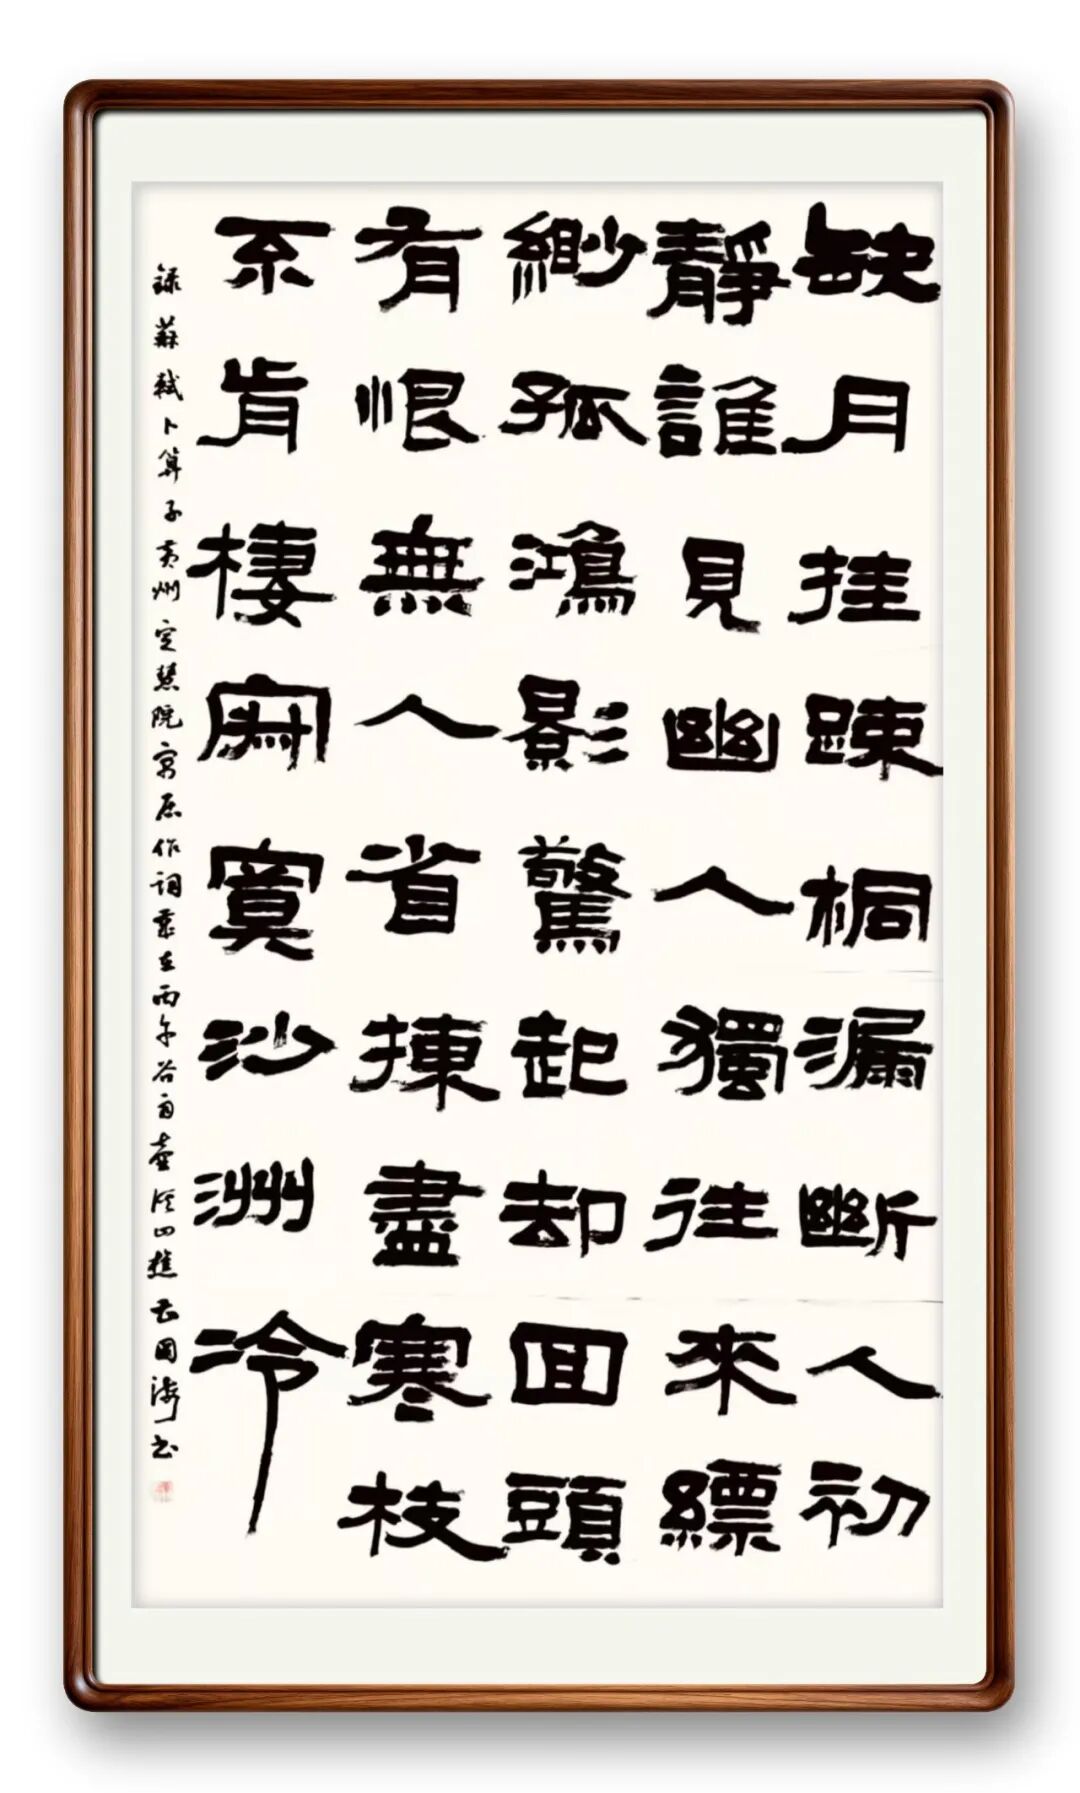 缺月挂踈桐漏斷人初
靜誰見幽人獨往來縹
緲孤鴻影驚起却回頭
有恨無人省揀盡寒枝
不肯棲寂寞沙洲冷
録蘇軾卜算子黄州定慧院寓居作詞歲在丙午谷雨壺溪山樵國书